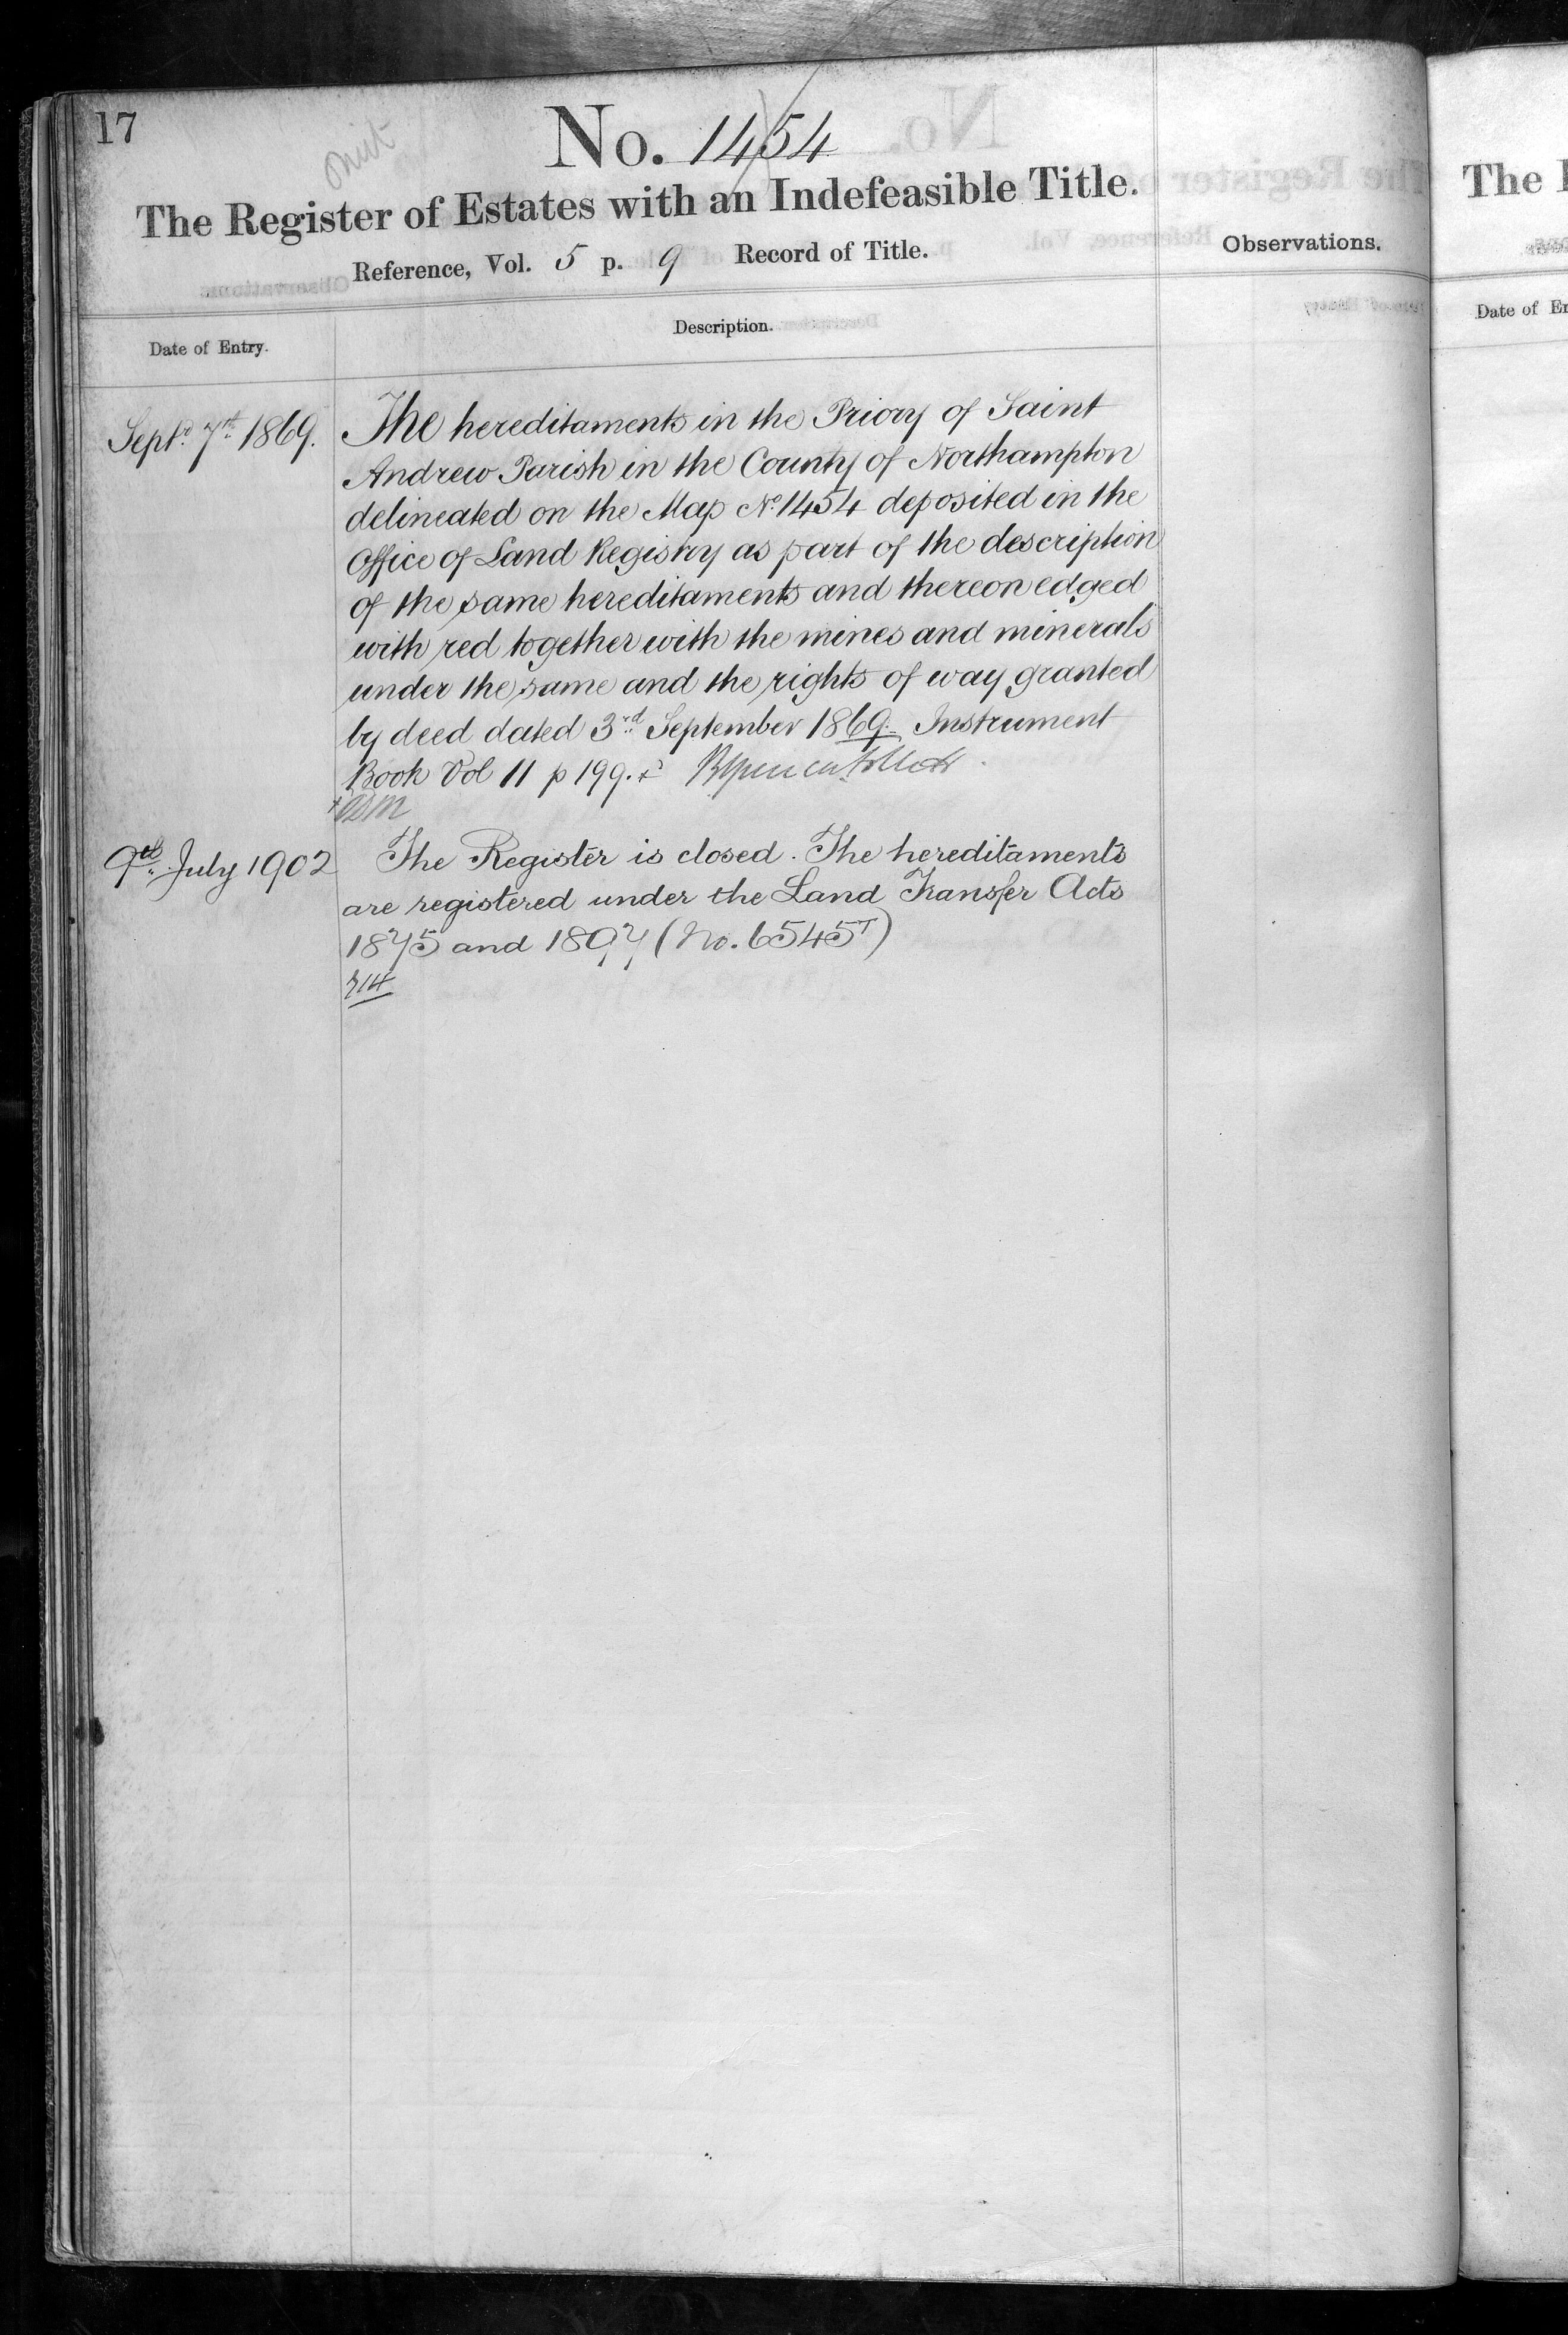 17
omit
No. 1454
The Register of Estates with an Indefeasible Title.
Reference, Vol. 5 p. 9 Record of Title.
Observations.
Date of Entry.
Description.
Septr. 7th 1869.
The hereditaments in the Priory of Saint
Andrew Parish in the County of Northampton
delineated on the Map No. 1454 deposited in the
Office of Land Registry as part of the description
of the same hereditaments and thereon edged
with red together with the mines and minerals
under the same and the rights of way granted
by deed dated 3rd September 1869. Instrument
Book Vol 11 p 199.
9th July 1902
The Register is closed. The hereditaments
are registered under the Land Transfer Acts
1875 and 1897 (No. 6545T)
The
Date of